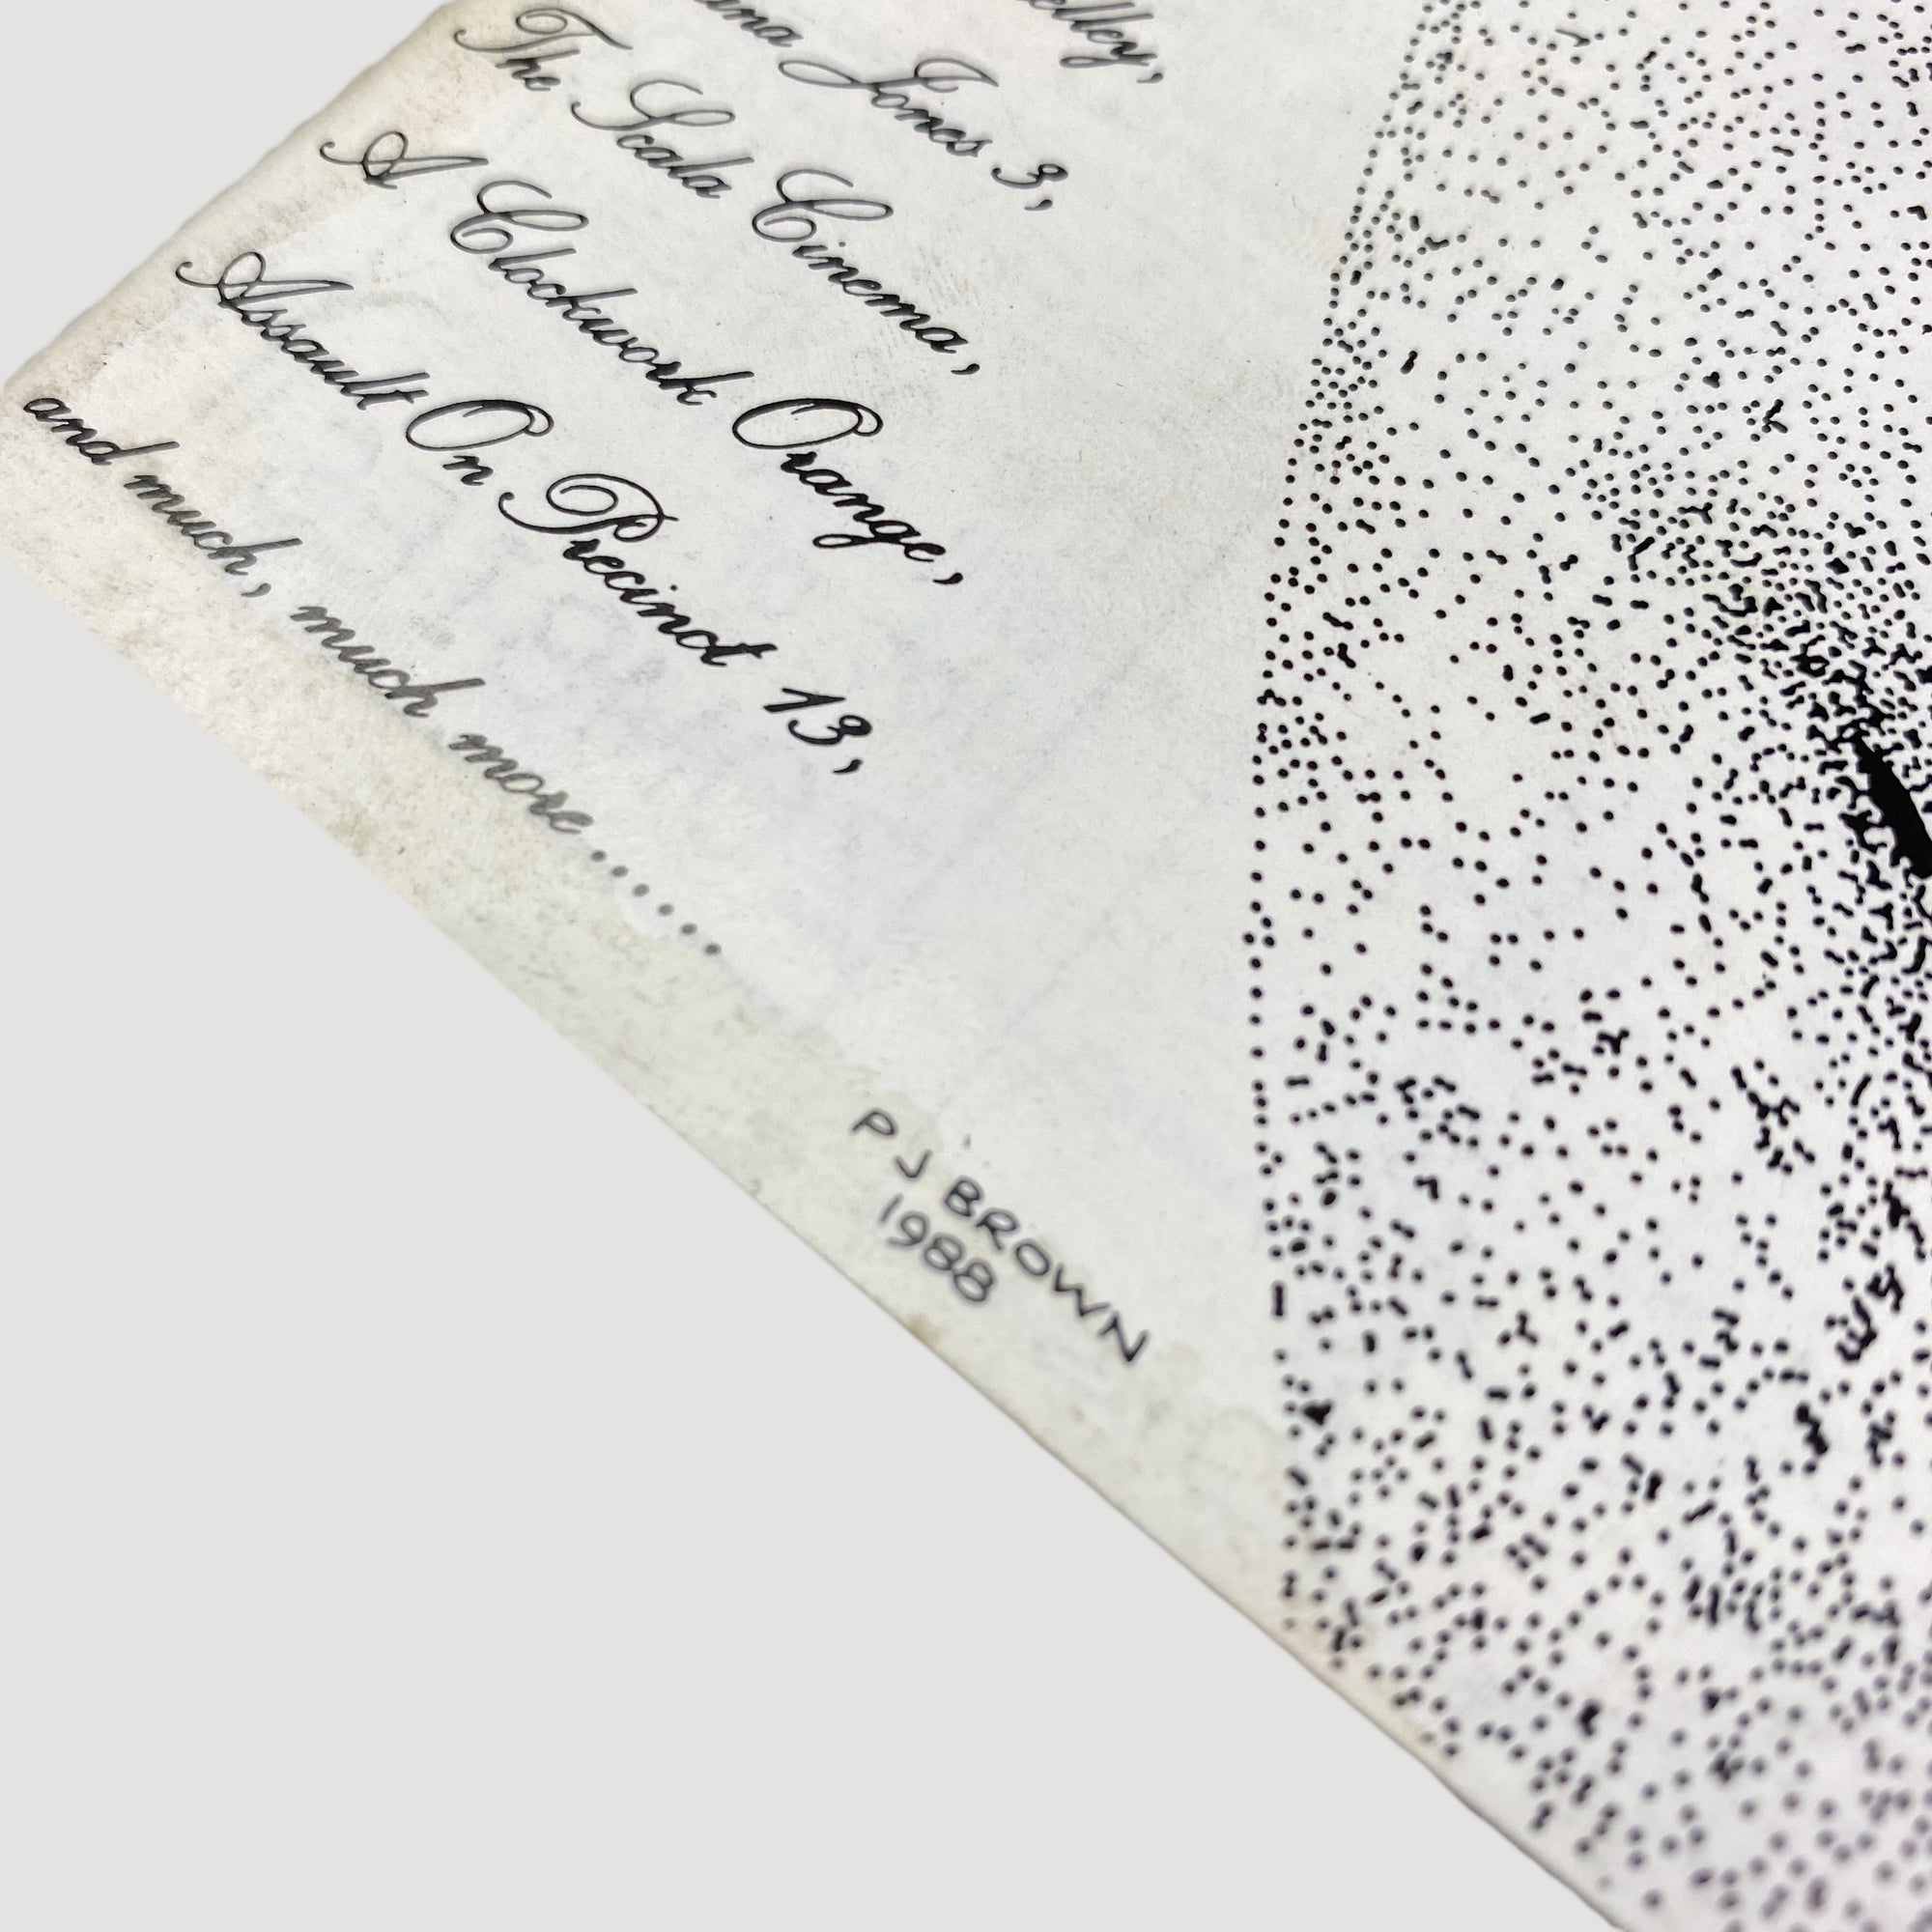 Jones 3,
The Scala Cinema,
A Clockwork Orange,
Assault On Precinct 13,
and much, much more......
P J BROWN
1988